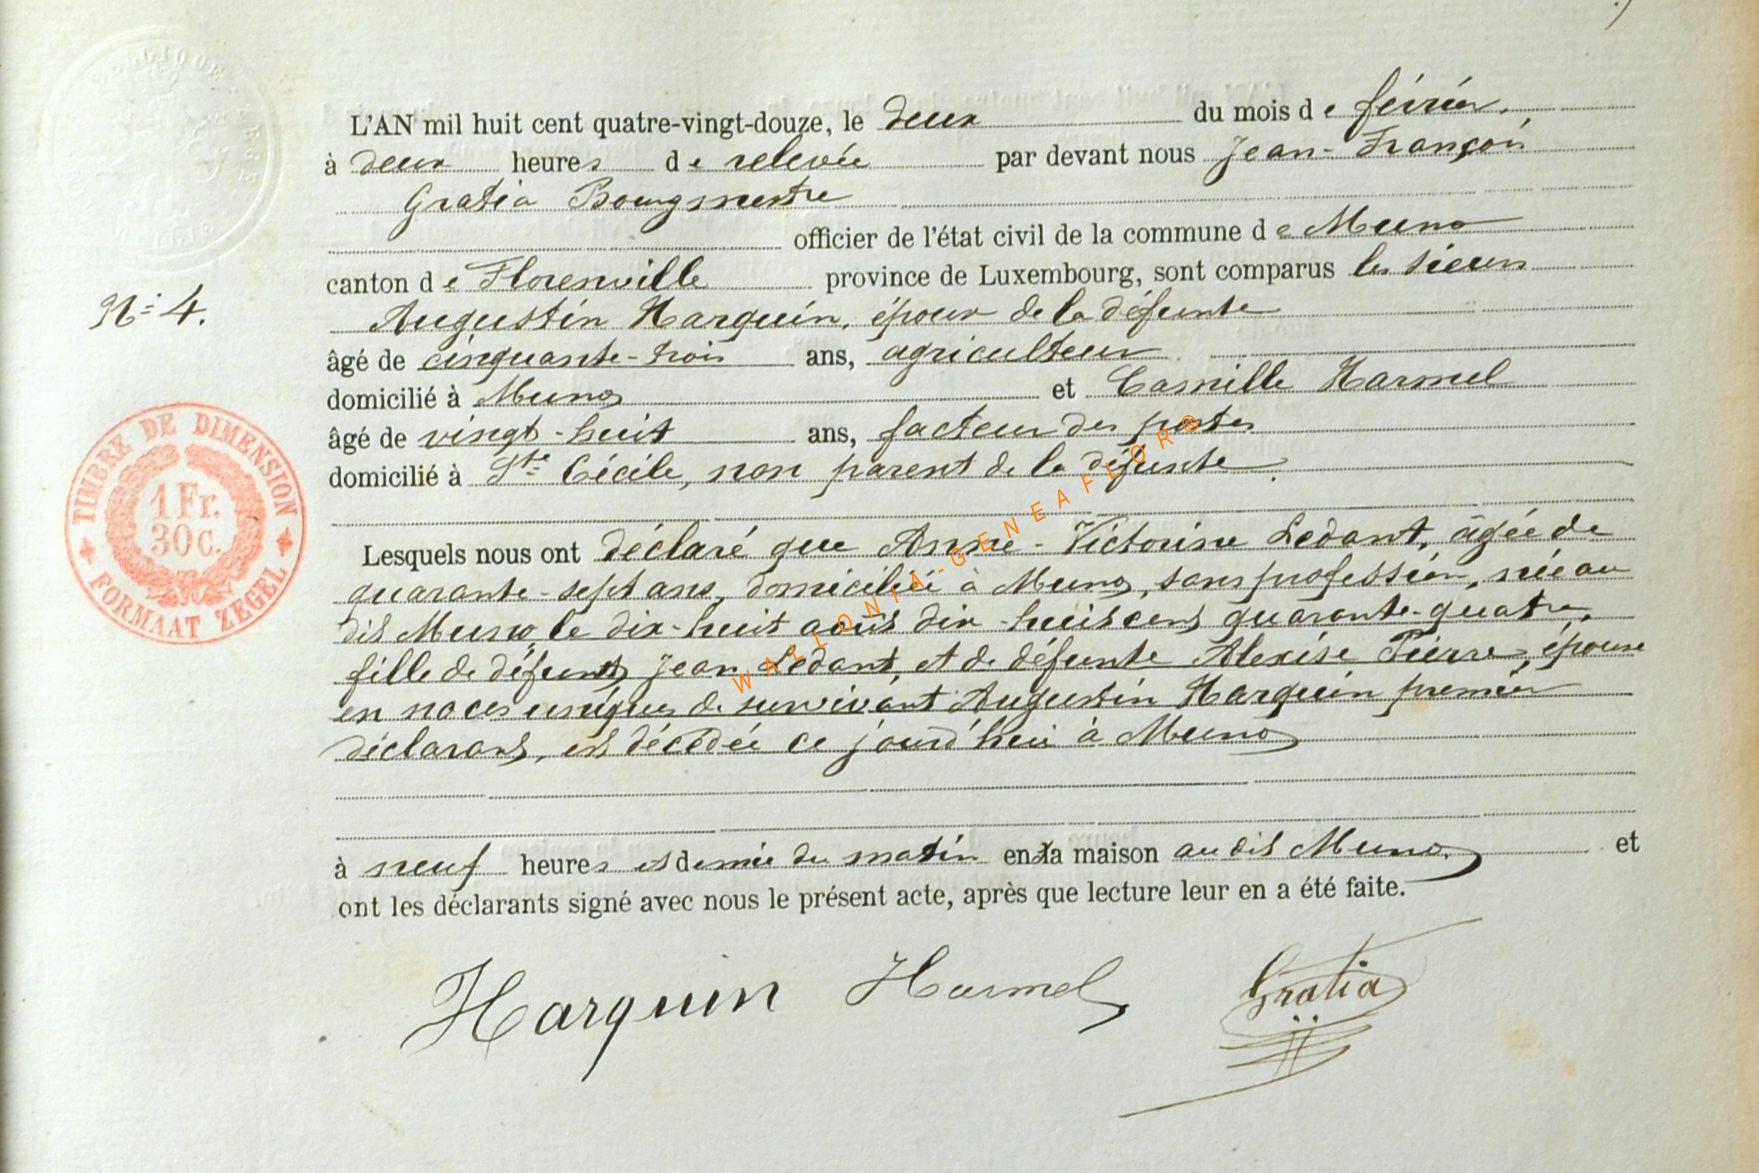 L'AN mil huit cent quatre-vingt-douze, le deux du mois de février,
à deux heures de relevée par devant nous Jean-François
Gratia Bourgmestre
officier de l'état civil de la commune de Muno
canton de Florenville province de Luxembourg, sont comparus les sieurs
N° 4.
Augustin Harquin, époux de la défunte
âgé de cinquante-trois ans, agriculteur
domicilié à Muno et Camille Harmel
âgé de vingt-huit ans, facteur des postes
domicilié à Ste Cécile, non parent de la défunte.
TIMBRE DE DIMENSION
1 Fr.
30 C.
FORMAAT ZEGEL
Lesquels nous ont déclaré que Anne-Victorine Ledant, âgée de
quarante-sept ans, domiciliée à Muno, sans profession, née au
dit Muno le dix-huit août dix-huit cent quarante-quatre,
fille de défunt Jean Ledant, et de défunte Alexise Pierre, épouse
en noces uniques de survivant Augustin Harquin premier
déclarant, est décédée ce jourd'hui à Muno
à neuf heures et demie du matin en sa maison au dit Muno, et
ont les déclarants signé avec nous le présent acte, après que lecture leur en a été faite.
Harquin Harmel Gratia
WALLONIA-GENEAFLOR®